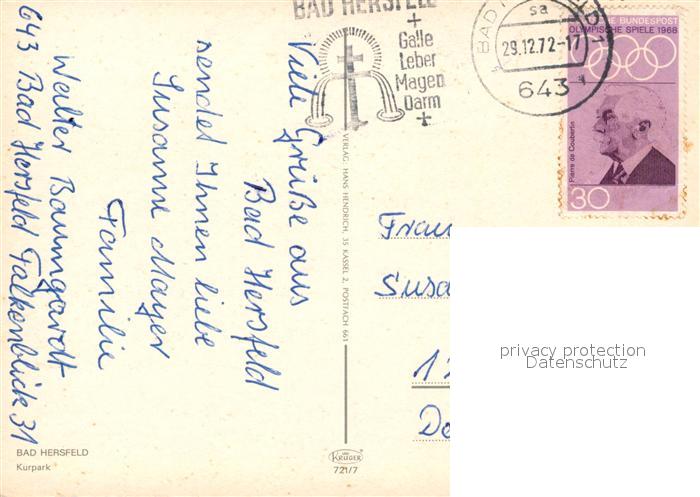 BAD HERSFELD
+
Galle
Leber
Magen
Darm
+
BAD
sa
29.12.72-17
643
1
BUNDESPOST
OLYMPISCHE SPIELE 1968
Pierre de Coubertin
30
Viele Grüße aus
Bad Hersfeld
sendet Ihnen liebe
Susanne Mayer
Familie
Walter Baumgardt
643 Bad Hersfeld Falkenblick 31
VERLAG: HANS HENDRICH, 35 KASSEL 2, POSTFACH 661
Frau
Susa
1
Do
BAD HERSFELD
Kurpark
KRÜGER
721/7
privacy protection
Datenschutz